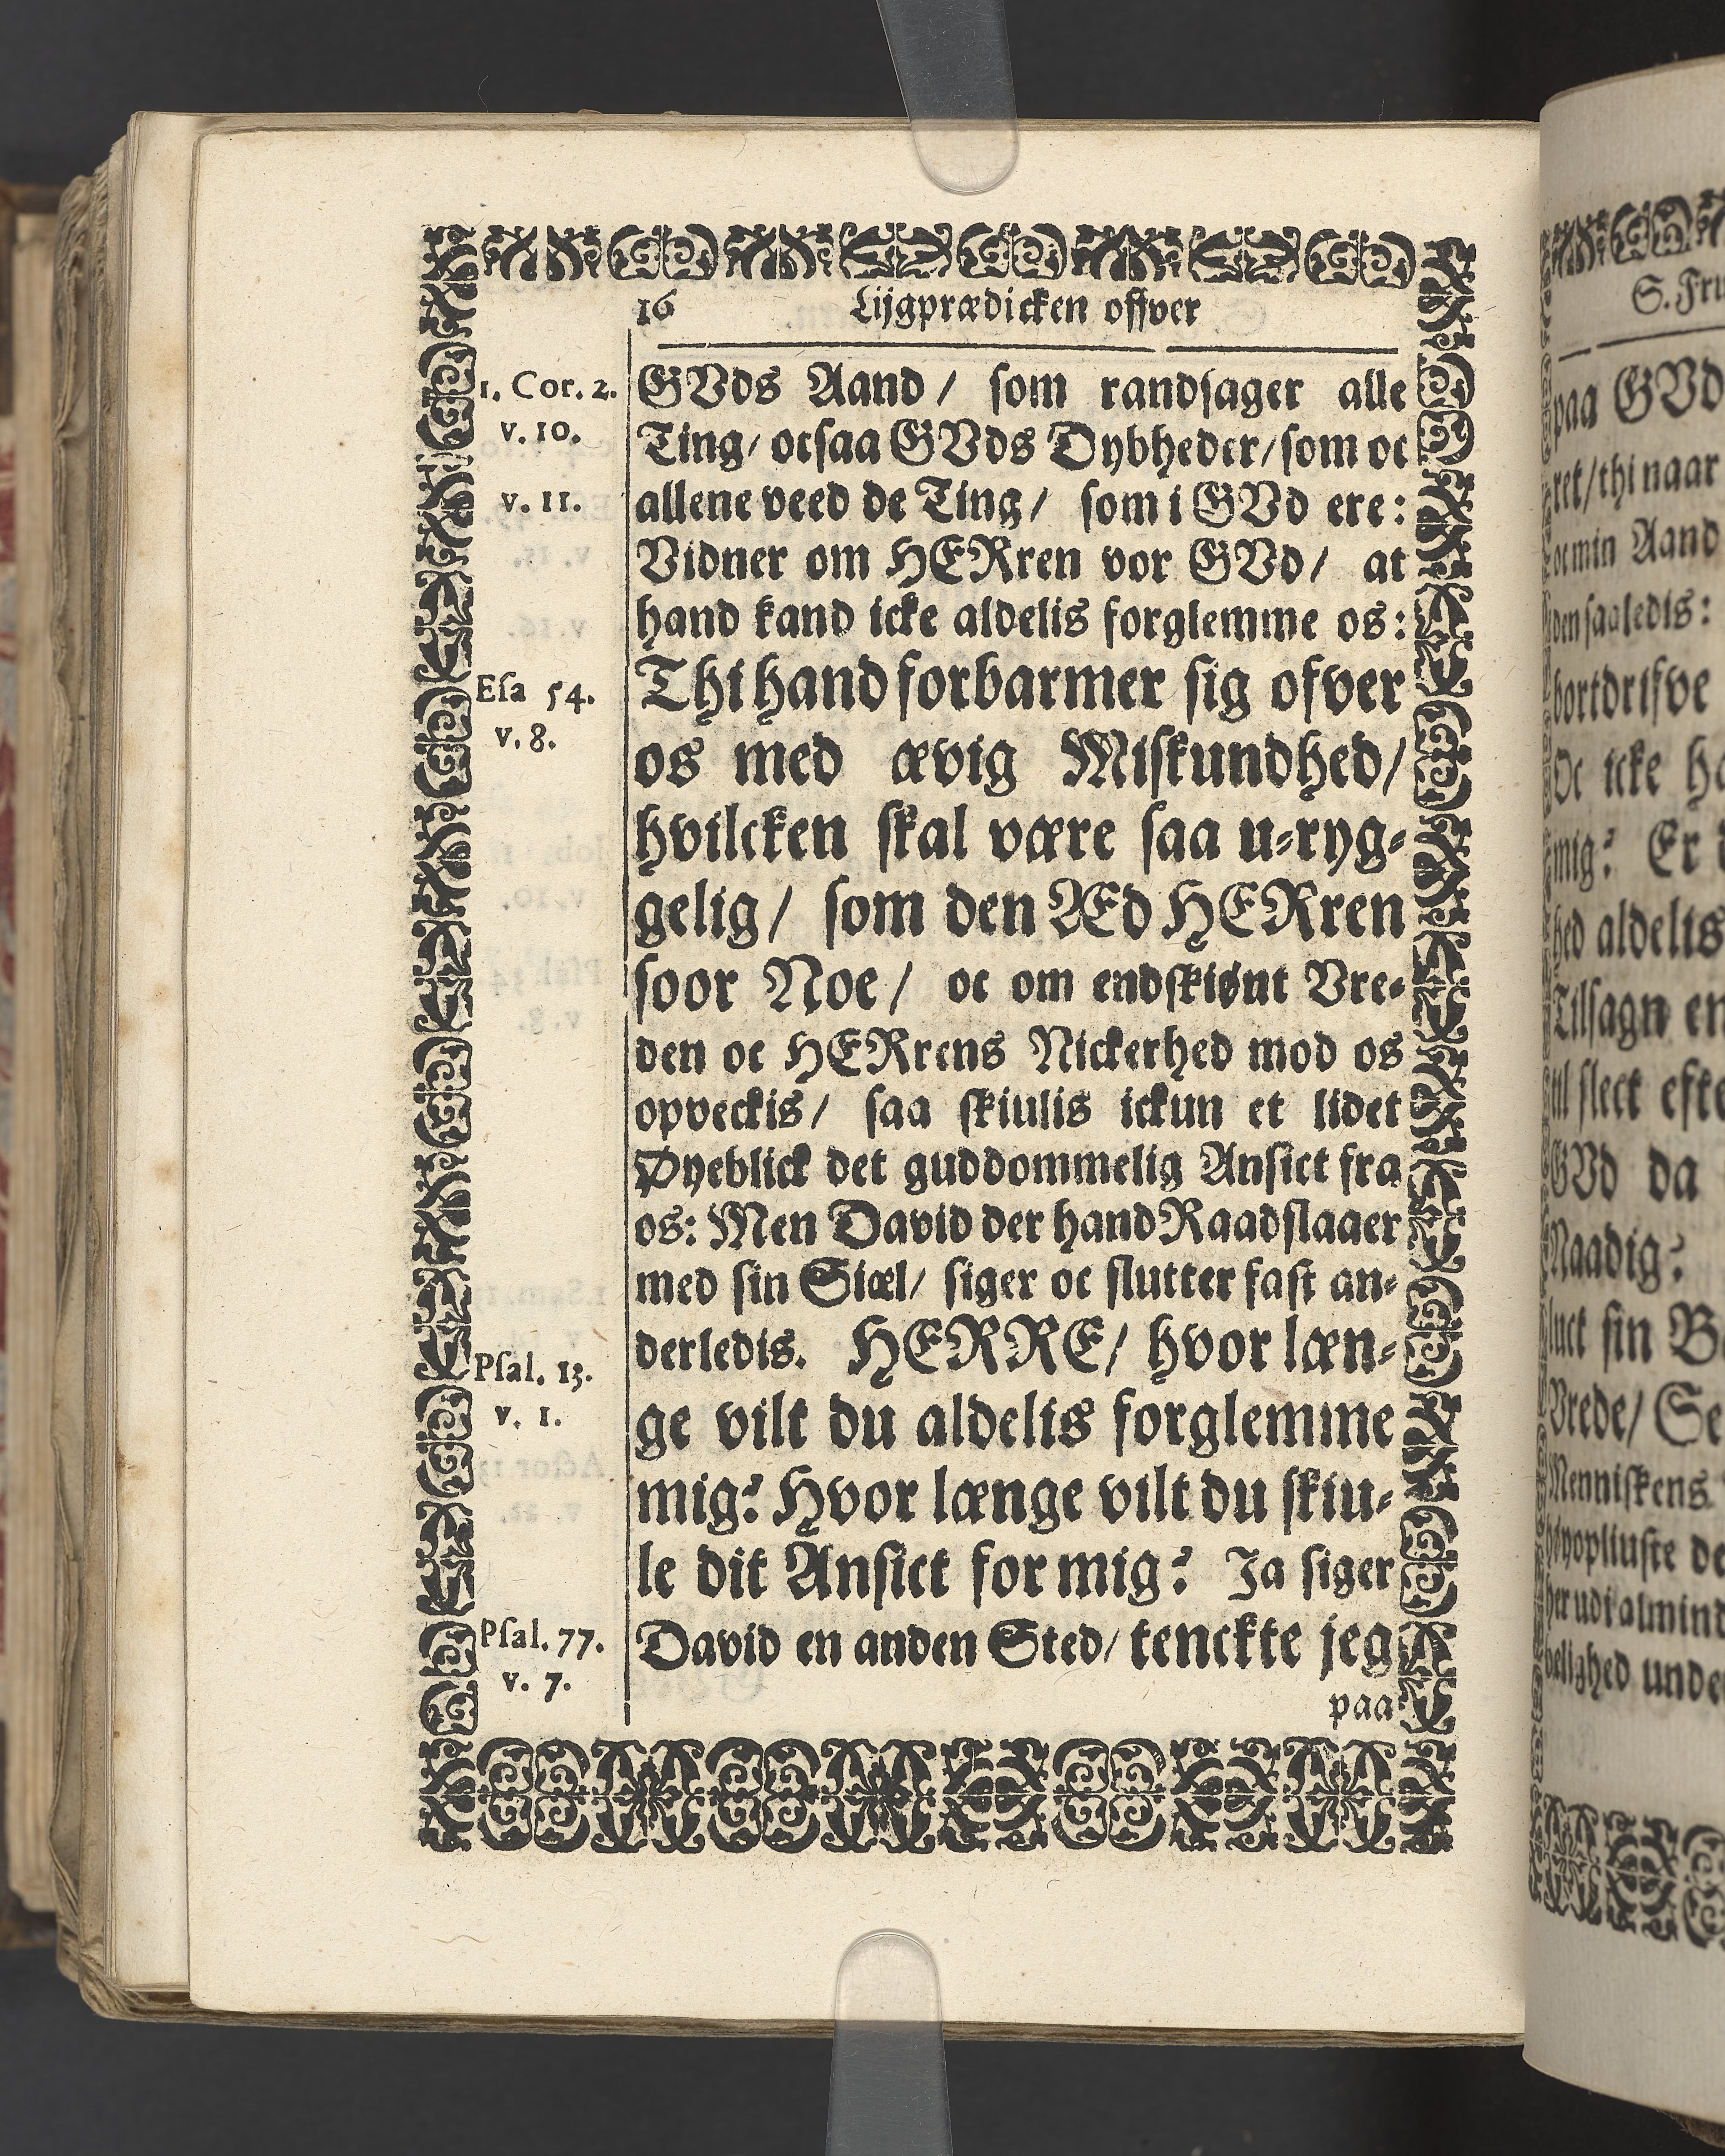 16 Lijgprædicken offver
1. Cor. 2.
v. 10.
v. 11.
Esa 54.
v. 8.
Psal. 13.
v. 1.
Psal. 77.
v. 7.
GVds Aand / som randsager alle
Ting / ocsaa GVds Dybheder / som oc
allene veed de Ting / som i GVd ere :
Vidner om HERren vor GVd / at
hand kand icke aldelis forglemme os :
Thi hand forbarmer sig ofver
os med ævig Miskundhed /
hvilcken skal være saa u-ryg-
gelig / som den ÆEd HERren
soor Noe / oc om endskiønt Vre-
den oc HERrens Nickerhed mod os
opveckis / saa skiulis ickun et lidet
Øyeblick det guddommelig Ansict fra
os : Men David der hand Raadslaaer
med sin Siæl / siger oc slutter fast an-
derledis. HERRE / hvor læn-
ge vilt du aldelis forglemme
mig? Hvor længe vilt du skiu-
le dit Ansict for mig? Ja siger
David en anden Sted / tenckte jeg
paa
S. Fru
paa GVd
ret / thi naar
oc min Aand
den saaledis :
bortdrifve
Oc icke
mig? Er
hed aldelis
Tilsagn
til slect
GVd da
Naadig?
luct sin
Vrede /
Menniskens
her udi
unde